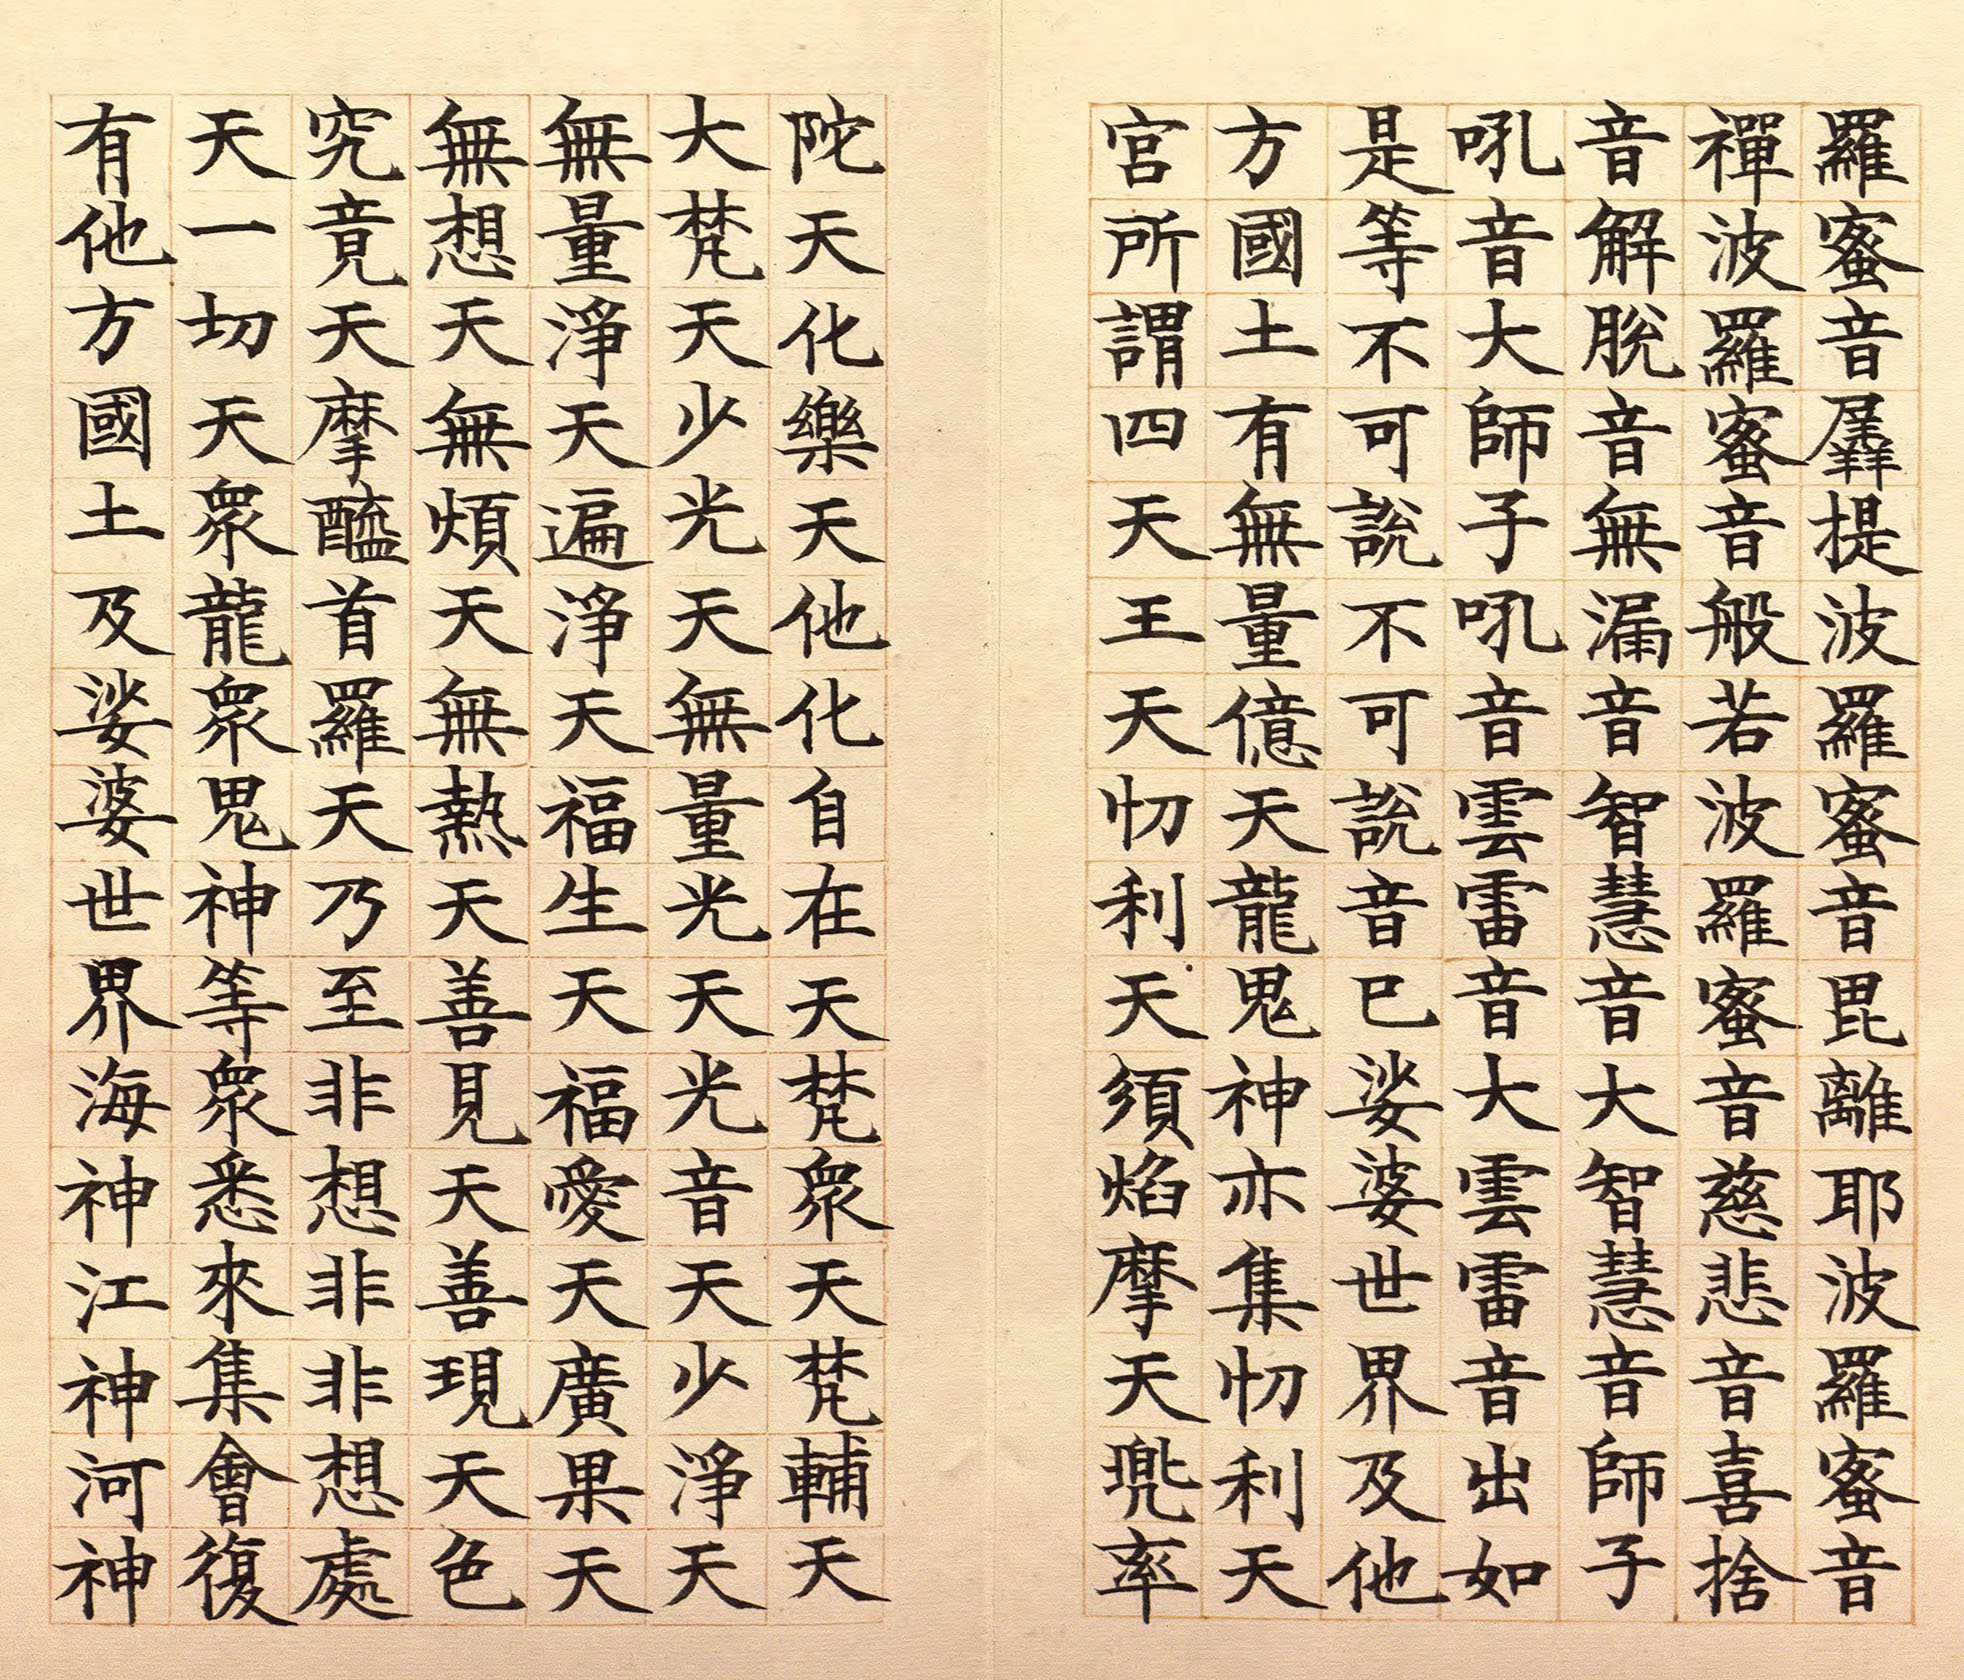 羅蜜音羼提波羅蜜音毘離耶波羅蜜音
禪波羅蜜音般若波羅蜜音慈悲音喜捨
音解脫音無漏音智慧音大智慧音師子
吼音大師子吼音雲雷音大雲雷音出如
是等不可說不可說音已娑婆世界及他
方國土有無量億天龍鬼神亦集忉利天
宮所謂四天王天忉利天須焰摩天兜率
陀天化樂天他化自在天梵衆天梵輔天
大梵天少光天無量光天光音天少淨天
無量淨天遍淨天福生天福愛天廣果天
無想天無煩天無熱天善見天善現天色
究竟天摩醯首羅天乃至非想非非想處
天一切天衆龍衆鬼神等衆悉來集會復
有他方國土及娑婆世界海神江神河神